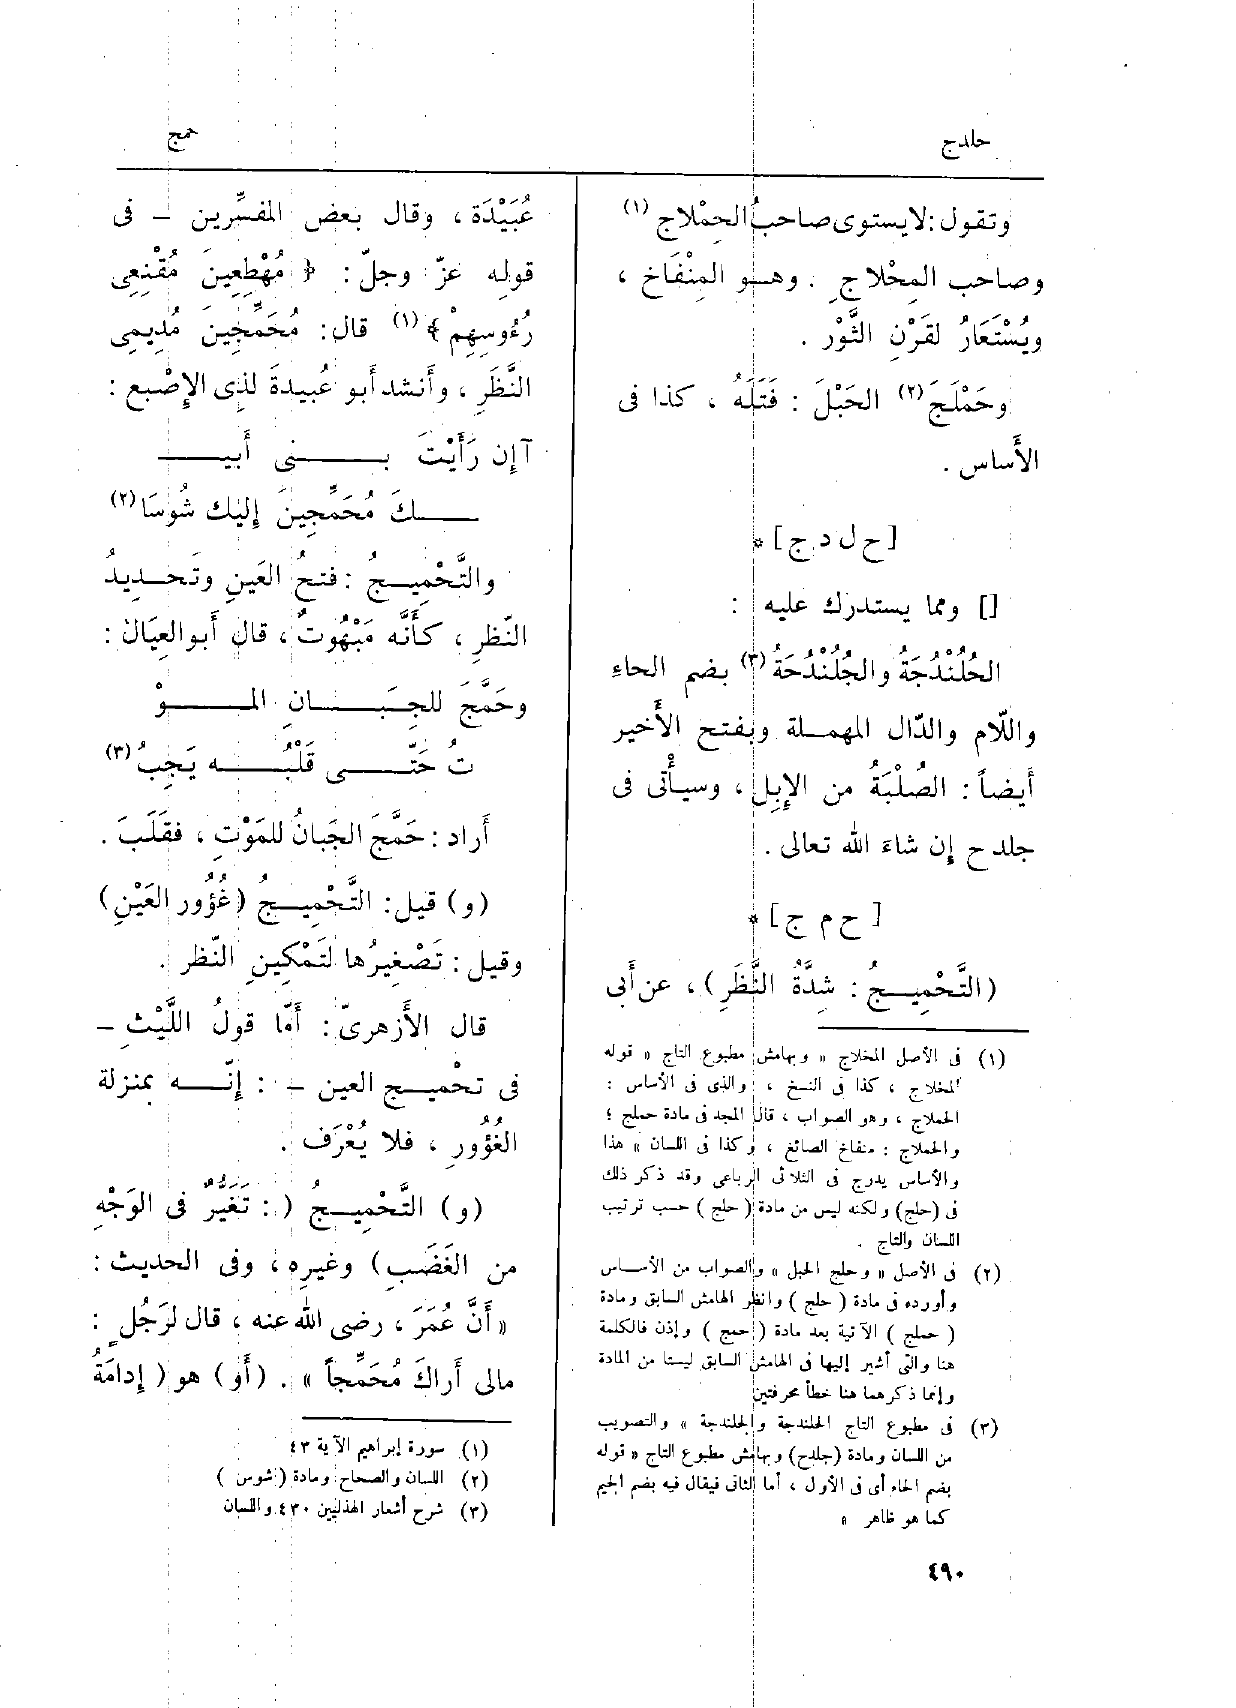 حلدج
حمج
وتقول: لا يستوى صاحبُ الحِمْلاجِ (١)
وصاحب المِحْلاجِ . وهـو المِنْفَاخ ،
ويُسْتَعَارُ لقَرْنِ الثَّوْر .
وحَمْلَجَ (٢) الحَبْلَ : فَتَلَهُ ، كذا فى
الأَساس .
[ ح ل د ج ] *
[] ومما يستدرك عليه :
الحُلُنْدُجَةُ والجُلُنْدُحَةُ (٣) بضم الحاءِ
واللّام والدّال المهمـلة وبفتح الأَخير
أَيضاً : الصُلْبَةُ من الإِبِل ، وسيأْتى فى
جلدح إِن شاءَ الله تعالى .
[ ح م ج ] *
(التَّحْمِيـجُ : شدَّةُ النَّظَرِ) ، عن أَبى
(١) فى الأصل المخلاج « وبهامش مطبوع التاج « قوله
المخلاج ، كذا فى النسخ ، والذى فى الأساس :
الحملاج ، وهو الصواب ، قال المجد فى مادة حملج ؛
والحملاج : منفاخ الصائغ ، وكذا فى اللسان » هذا
والأساس يدرج فى الثلاثى الرباعى وقد ذكر ذلك
فى (حلج) ولكنه ليس من مادة ( حلج ) حسب ترتيب
اللسان والتاج .
(٢) فى الأصل « وحلج الحبل » والصواب من الأساس
وأورده فى مادة ( حلج ) وانظر الهامش السابق ومادة
( حملج ) الآتية بعد مادة ( حمج ) وإذن فالكلمة
هنا والتى أشير إليها فى الهامش السابق ليستا من المادة
وإنما ذكرهما هنا خطأ محرفتين
(٣) فى مطبوع التاج الحلندجة والجلندجة » والتصويب
من اللسان ومادة (جلدح) وبهامش مطبوع التاج « قوله
بضم الحاء أى فى الأول ، أما الثانى فيقال فيه بضم الجيم
كما هو ظاهر »
عُبَيْدَة ، وقال بعض المفسِّرين – فى
قوله عزّ وجلّ : ﴿ مُهْطِعِينَ مُقْنِعِى
رُءُوسِهِمْ ﴾ (١) قال : مُحَمِّجِينَ مُدِيمِى
النَّظَرِ ، وأَنشد أَبو عُبيدةَ لذى الإِصْبع :
آإِن رَأَيْتَ بـــنى أَبيـــ
ـــكَ مُحَمِّجِينَ إِلَيك شُوسَا (٢)
والتَّحْمِيـجُ : فتحُ العَينِ وتَحـديدُ
النّظرِ ، كأَنَّه مَبْهُوتٌ ، قال أَبو العِيَال :
وحَمَّجَ للجِبَـــانِ المَـــوْ
تُ حَتّـــى قَلْبُـــه يَجِبُ (٣)
أَراد : حَمَّجَ الجَبانُ للمَوْتِ ، فقَلَبَ .
(و) قيل : التَّحْمِيـجُ (غُؤُور العَيْنِ)
وقيل : تَصْغِيرُها لتَمْكِينِ النّظر .
قال الأَزهرىّ : أَمّا قولُ اللَّيْثِ –
فى تحْمِيـج العين – : إِنّـــه بمنزلة
الغُؤُورِ ، فلا يُعْرَف .
(و) التَّحْمِيـجُ (: تَغَيُّرٌ فى الوَجْهِ
من الغَضَبِ) وغيرِه ، وفى الحديث :
« أَنَّ عُمَرَ ، رضى الله عنه ، قال لرَجُلٍ :
مالى أَراكَ مُحَمِّجاً » . (أَو) هو ( إِدامَةُ
(١) سورة إبراهيم الآية ٤٣
(٢) اللسان والصحاح ومادة ( شوس )
(٣) شرح أشعار الهذليين ٤٣٠ واللسان
٤٩٠